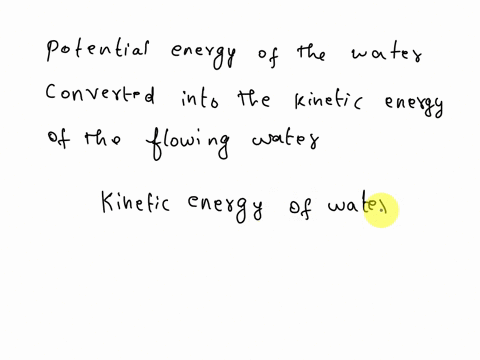 Potential energy of the water
Converted into the kinetic energy
of the flowing water
Kinetic energy of water